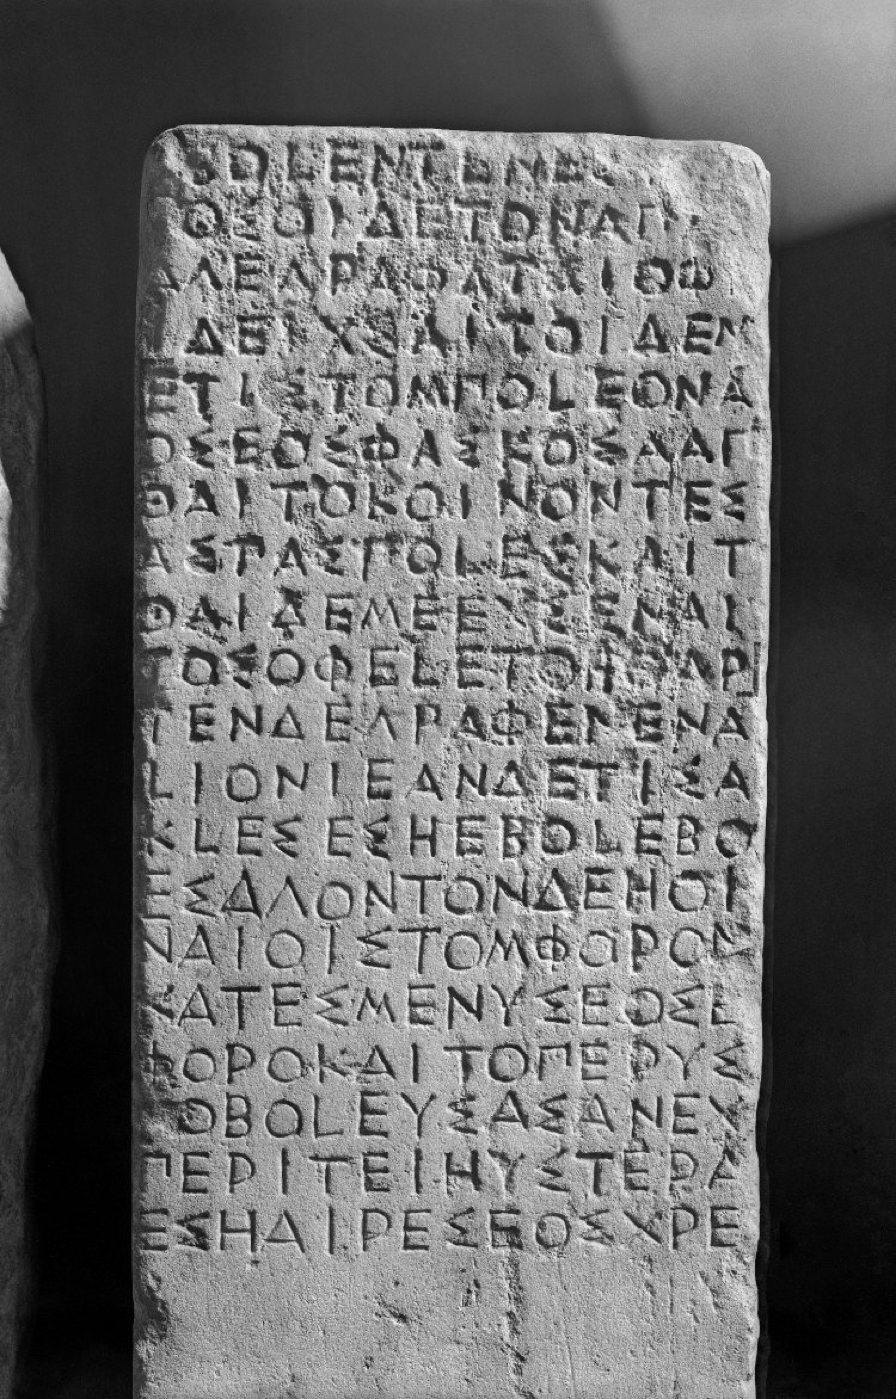 ΒΟLΕΝΤΟΝΕ
ΘΕΟΙΔΕΤΟΝΑΠ
ΑΛΕΛΡΑΦΑΤΑΙΟΦ
ΔΕΙΧΣΑΙΤΟΙΔΕΜ
ΕΤΙΣΤΟΜΠΟLΕΟΝΑ
ΟΣΕΟΣΦΑΣΕΟΣΑΑΠ
ΘΑΙΤΟΚΟΙΝΟΝΤΕΣ
ΑΣΤΡΑΣΠΟLΕΣΚΑΙΤ
ΘΑΙΔΕΜΕΕΧΣΕΝΑΙ
ΤΟΣΟΦΕLΕΤΟΗΟΛΑΡ
ΓΕΝΔΕΛΡΑΦΕΝΕΝΑ
LΙΟΝΙΕΑΝΔΕΤΙΣΑ
ΚLΕΣΕΣΗΕΒΟLΕΒΟ
ΕΣΔΛΟΝΤΟΝΔΕΗΟΙ
ΝΑΙΟΙΣΤΟΜΦΟΡΟΝ
ΚΑΤΕΣΜΕΝΥΣΕΟΣΕ
ΦΟΡΟΚΑΙΤΟΠΕΡΥΣ
ΟΒΟLΕΥΣΑΣΑΝΕΧ
ΠΕΡΙΤΕΙΗΥΣΤΕΡΑ
ΕΣΗΑΙΡΕΣΕΟΣΧΡΕ